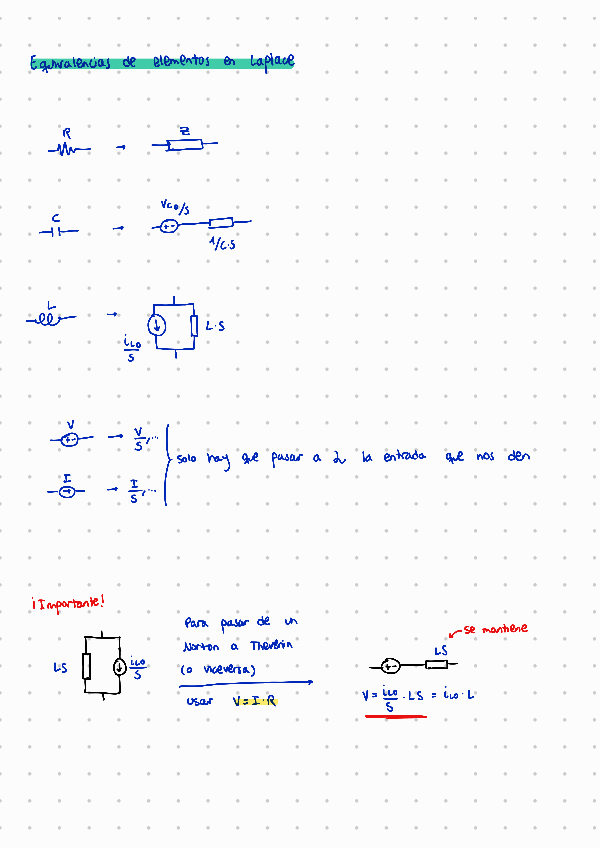 Equivalencias de elementos en Laplace
R → Z
C → Vco/s
1/C·s
L →
L·s
iLo/s
V → V/s, ...
solo hay que pasar a L la entrada que nos den
I → I/s, ...
¡Importante!
Para pasar de un
Norton a Thevenin
(o viceversa)
usar V = I·R
LS
iLo/s
se mantiene
LS
V = iLo/s · LS = iLo · L